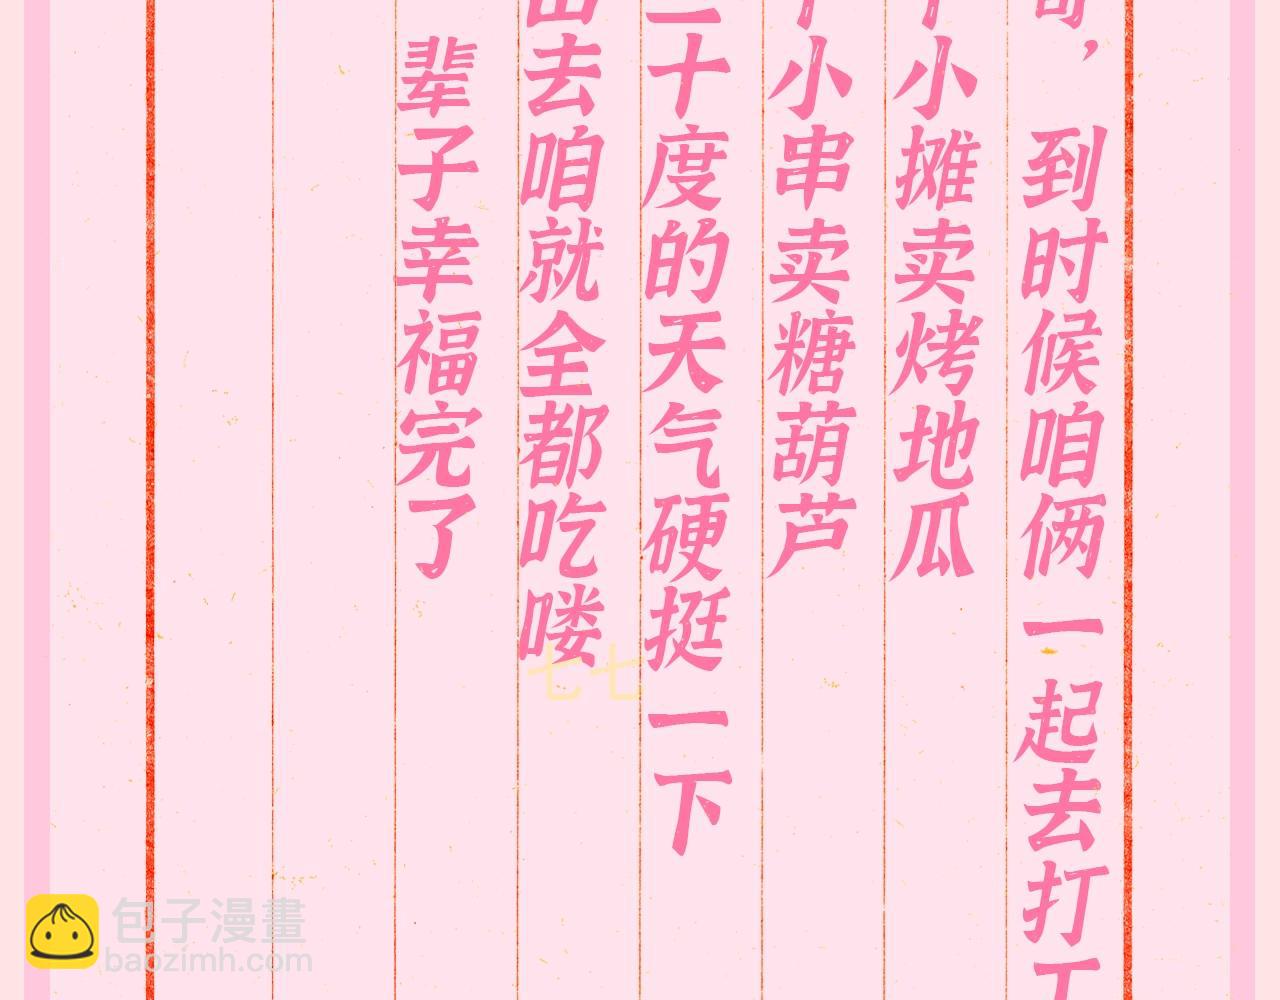 到时候咱俩一起去打工
小摊卖烤地瓜
小串卖糖葫芦
十度的天气硬挺一下
去咱就全都吃喽
辈子幸福完了
七七
包子漫畫
baozimh.com